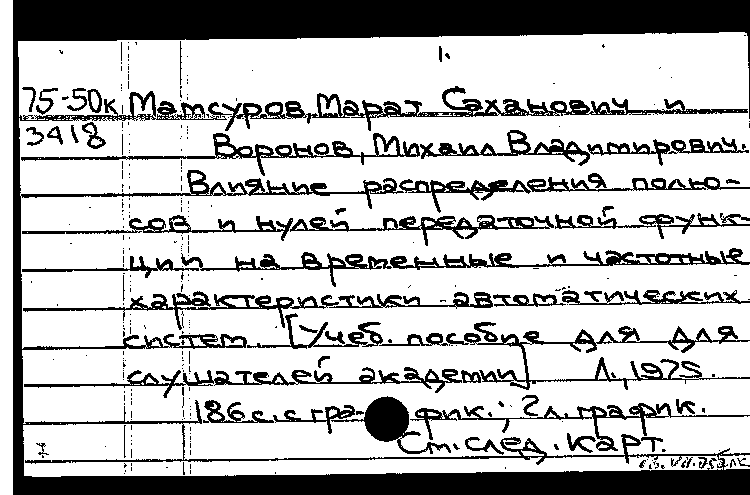 1.
75-50к Матсуров, Марат Саханович и
3418 Воронов, Михаил Владимирович.
Влияние распределения полю-
сов и нулей передаточной функ-
ции на временные и частотные
характеристики автоматических
систем. [Учеб. пособие для для
слушателей академии]. Л., 1975.
186 с. с гра- фик.; 2 л. график.
Ст. след. карт.